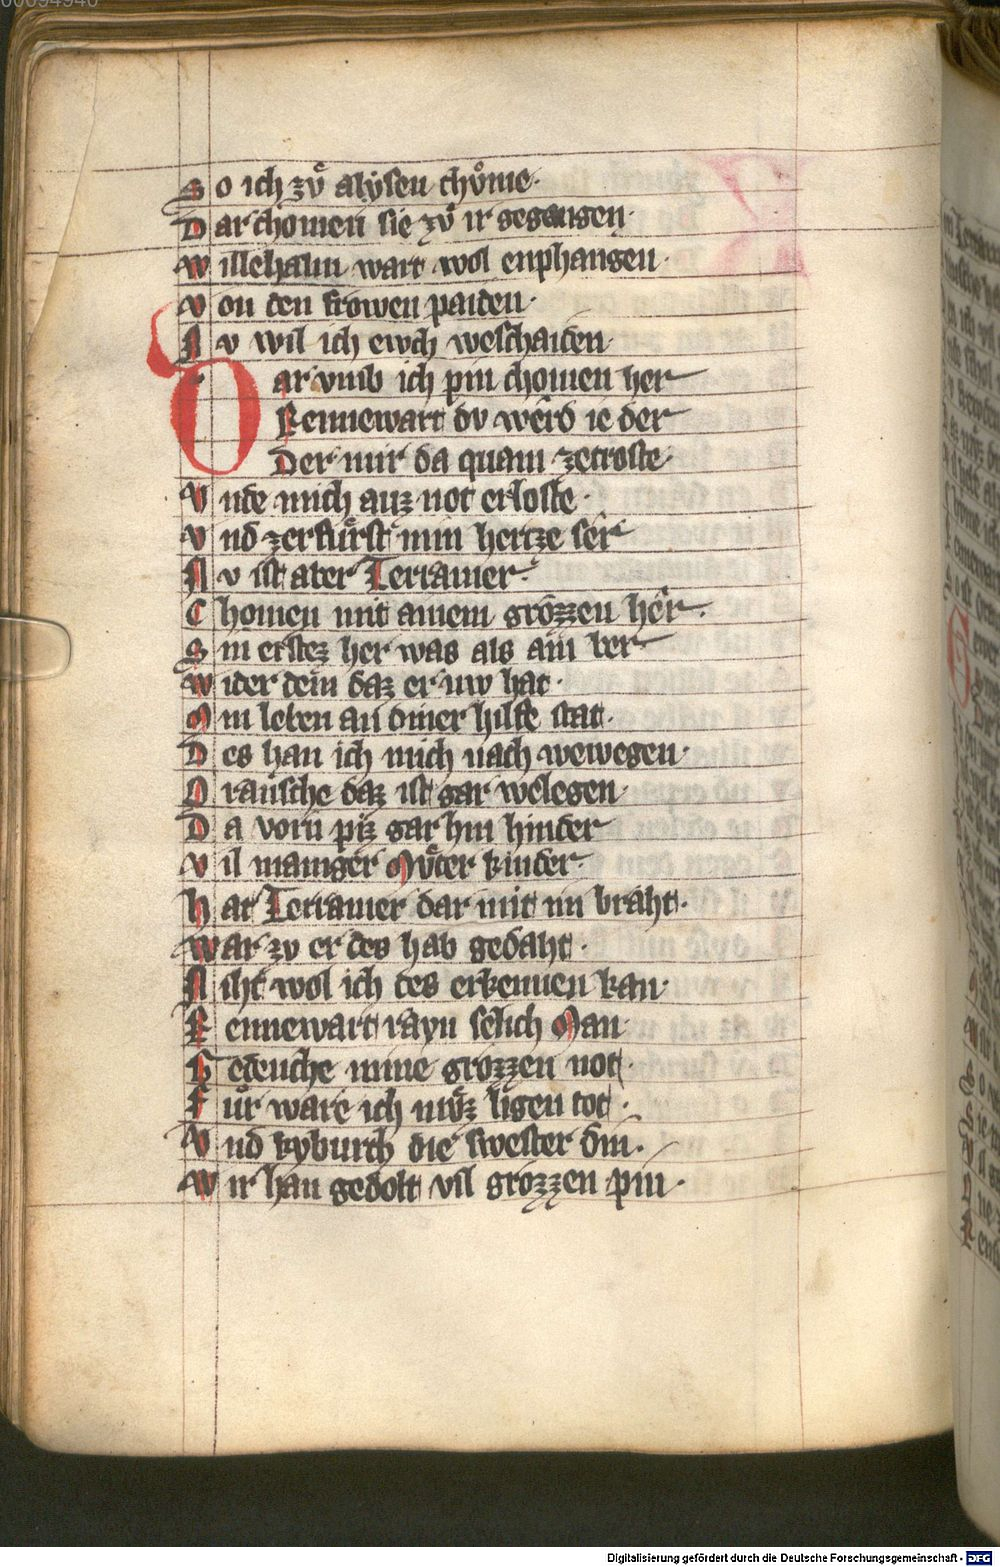 So ich zů alẏsen chůme·
Dar chomen sie zů ir gegangen·
Willehalm wart wol enphangen·
Von den frowen paiden·
Nv wil ich ewch weschaiden·
Dar vmb ich pin chomen her
Rennewart dv wêrd ie der
Der mir da quam zetroste·
Vnde mich auz not erloste·
Vnd zerfůrst min hertze sêr
Nv ist aber Terramer·
Chomen mit ainem grozzen hêr·
Sin erstez her was als ain ber
Wider dein daz er nw hat·
Min leben an diner hilfe stat·
Des han ich mich nach wewegen·
Oransche daz ist gar welegen·
Da vorn piz gar hin hinder
Vil maniger můter kinder·
Hat Terramer dar mit im braht·
War zv er des hab gedaht·
Niht wol ich des erkennen kan·
Rennewart rayn selich Man·
Gedenche mine grozzen not·
Fůr ware ich můz ligen tot·
Vnd kyburch die swester din·
Wir han gedolt vil grozzen pin·
Digitalisierung gefördert durch die Deutsche Forschungsgemeinschaft - DFG